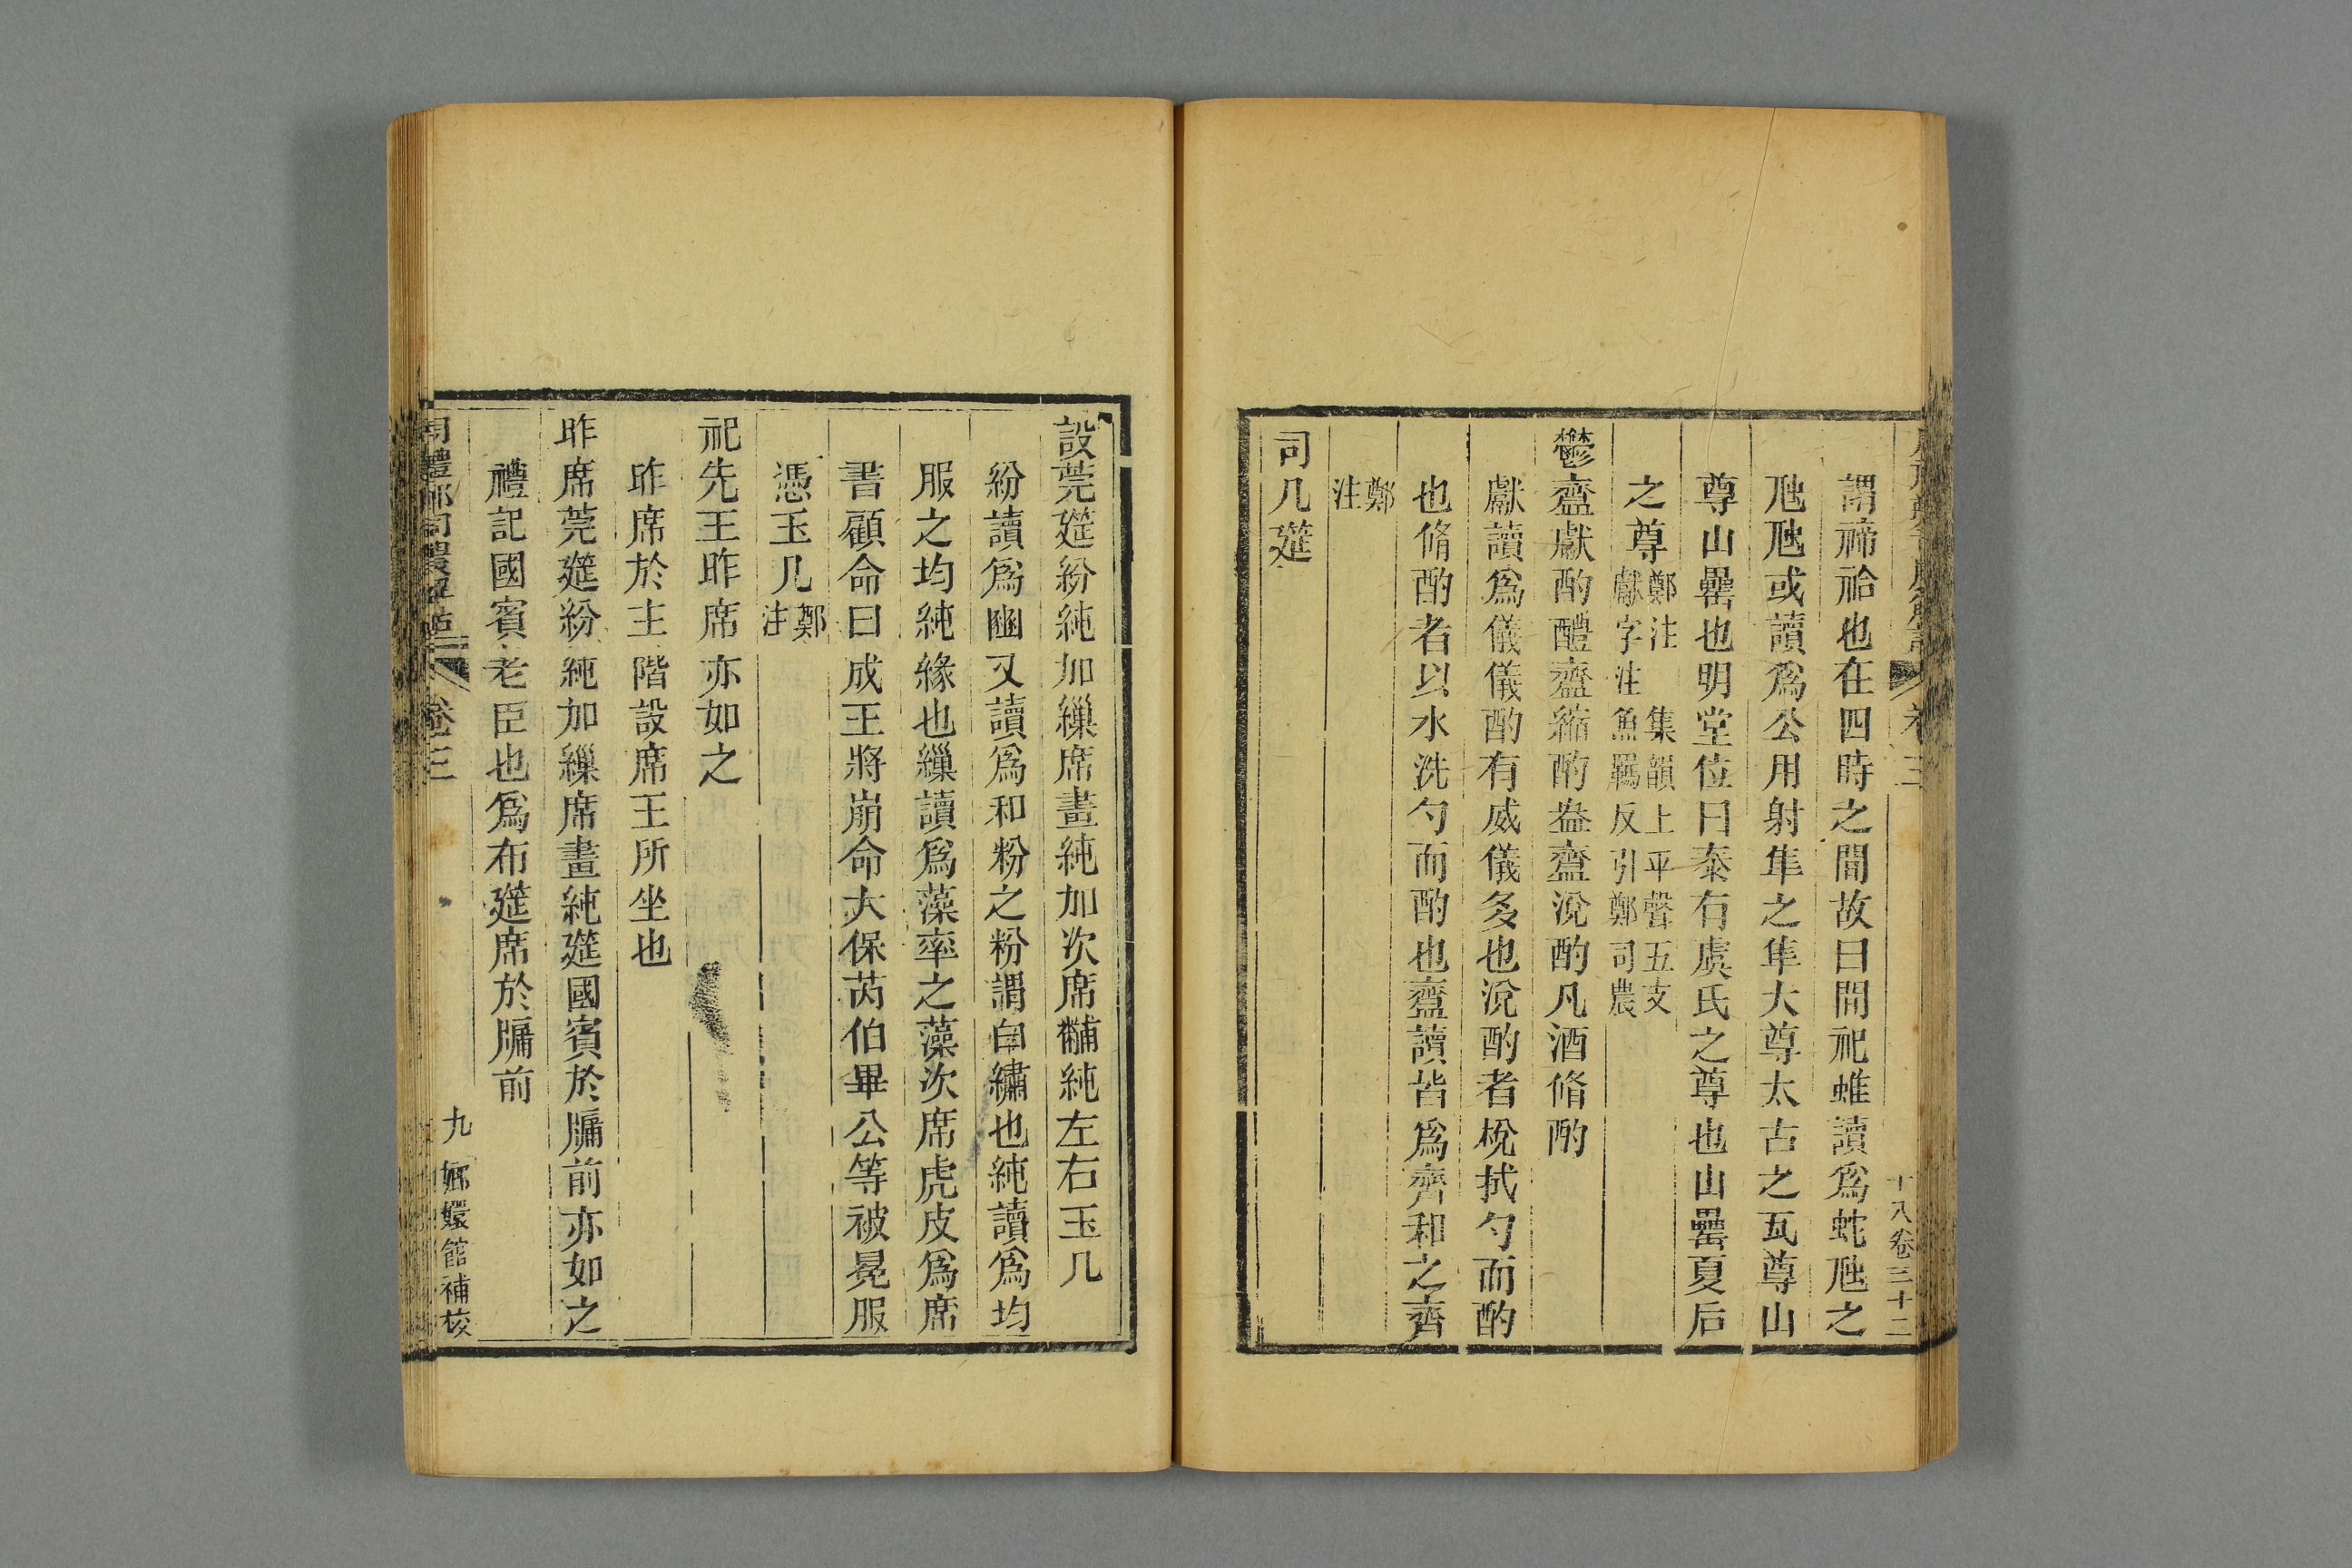 謂禘祫也在四時之間故曰間祀蜼讀爲蛇虺之
虺虺或讀爲公用射隼之隼大尊太古之瓦尊山
尊山罍也明堂位曰泰有虞氏之尊也山罍夏后
之尊鄭注 集韻上平聲五支
獻字注 魚羈反引鄭司農
鬱齍獻酌醴齍縮酌盎齍涚酌凡酒脩酌
獻讀爲儀儀酌有威儀多也涚酌者梲拭勺而酌
也脩酌者以水洗勺而酌也齍讀皆爲齊和之齊
鄭
注
司几筵
卷三
十八卷三十二
設莞筵紛純加繅席畫純加次席黼純左右玉几
紛讀爲豳又讀爲和粉之粉謂白繡也純讀爲均
服之均純緣也繅讀爲藻率之藻次席虎皮爲席
書顧命曰成王將崩命大保芮伯畢公等被冕服
憑玉几鄭
注
祀先王昨席亦如之
昨席於主階設席王所坐也
昨席莞筵紛純加繅席畫純筵國賓於牖前亦如之
禮記國賓老臣也爲布筵席於牖前
周禮鄭司農解詁 卷三
九 嫏嬛館補校